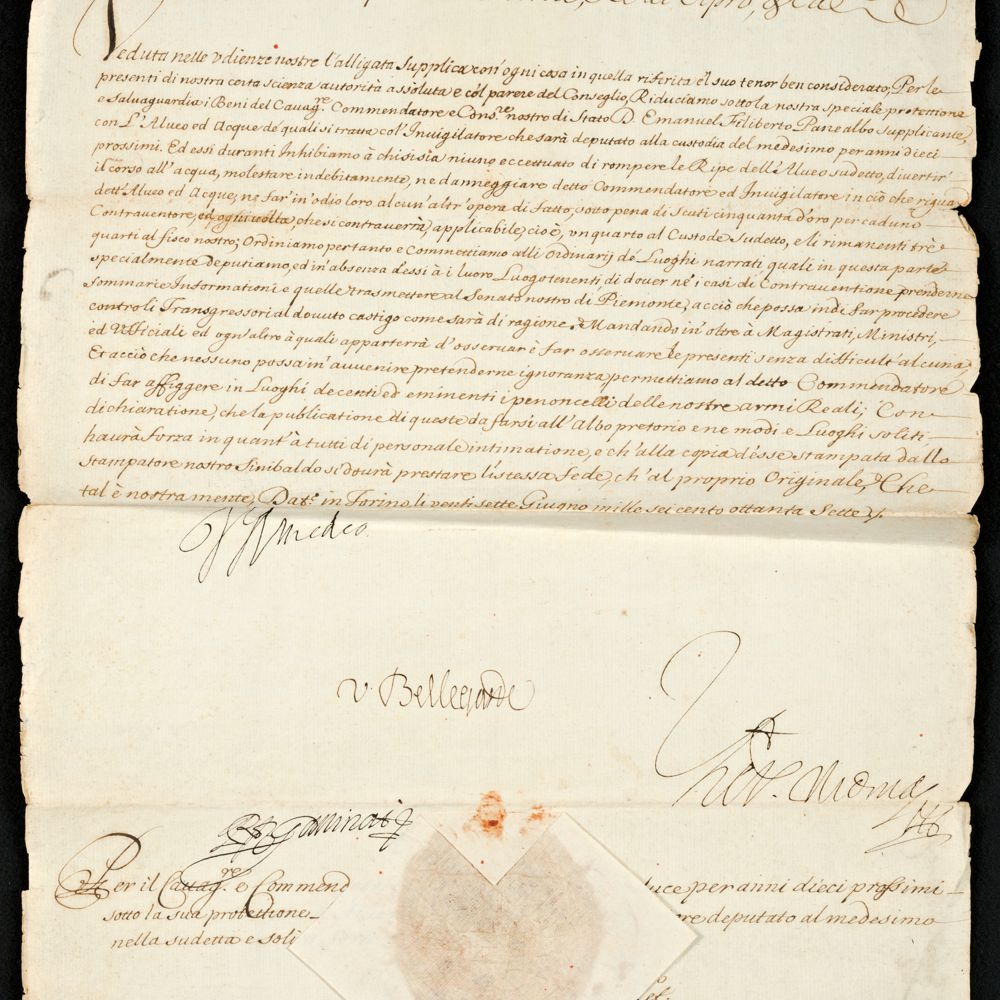 Rè di Cipro, &c
Veduta nelle Vdienze nostre l'alligata Supplica con' ogni cosa in quella riferita e'l suo tenor ben considerato, Per le
presenti di nostra certa scienza, autorità assoluta e col parere del Conseglio, Riduciamo sotto la nostra speciale protettione
e Salvaguardia i Beni del Cauag.re Commendatore e Cons.re nostro di Stato D. Emanuel Filiberto Panealbo supplicante,
con L'Alueo ed Acque de' quali si trata col' Inuigilatore che sarà deputato alla custodia del medesimo per anni dieci
prossimi. Ed essi duranti Inhibiamo à chi si sia niuno eccettuato di rompere le Ripe dell'Alueo sudetto, divertir'
il corso all'acqua, molestare indebitamente, ne danneggiare detto Commendatore ed Inuigilatore in ciò che riguar
dett'Alueo ed Acque, ne far' in'odio loro alcun'altr'opera di fatto, sotto pena di Scuti cinquanta d'oro per caduno
Contraventore, ed ogni volta, che si contraverrà, applicabile, cioè, vn quarto al Custode sudetto, e li rimanenti trè
quarti al fisco nostro; Ordiniamo per tanto e Commettiamo alli Ordinarij de Luoghi narrati quali in questa parte
specialmente deputiamo, ed in' absenza d'essi à i luoro Luogotenenti di dover nè i casi di Contraventione prenderne
sommarie Informationi e quelle trasmettere al Senato nostro di Piemonte, acciò che possa indi far procedere
contro li Transgressori al dovuto castigo come sarà di ragione. Mandando in' oltre à Magistrati, Ministri,
ed Vfficiali ed ogn' altro à quali apparterrà d'osseruar è far osseruare le presenti senza difficult' alcuna
Et acciò che nessuno possa in' auvenire pretenderne ignoranza permettiamo al detto Commendatore
di far affiggere in Luoghi decenti ed eminenti i penoncelli delle nostre armi Reali; Con
dichiaratione, che la publicatione di queste da farsi all'Albo pretorio e ne modi e Luoghi soliti
haurà forza in quant' à tutti di personale intimatione, e ch'alla copia d'esse stampata dallo
Stampatore nostro Sinibaldo si dourà prestare l'istessa fede, ch' al proprio Originale, Che
tal è nostra mente, Dat.e in Torino li venti sette Giugno mille sei cento ottanta sette
V Amedeo
v. Bellegarde
Per il Cauag.re e Commend
duce per anni dieci prossimi
sotto la sua protettione
re deputato al medesimo
nella sudetta e soli